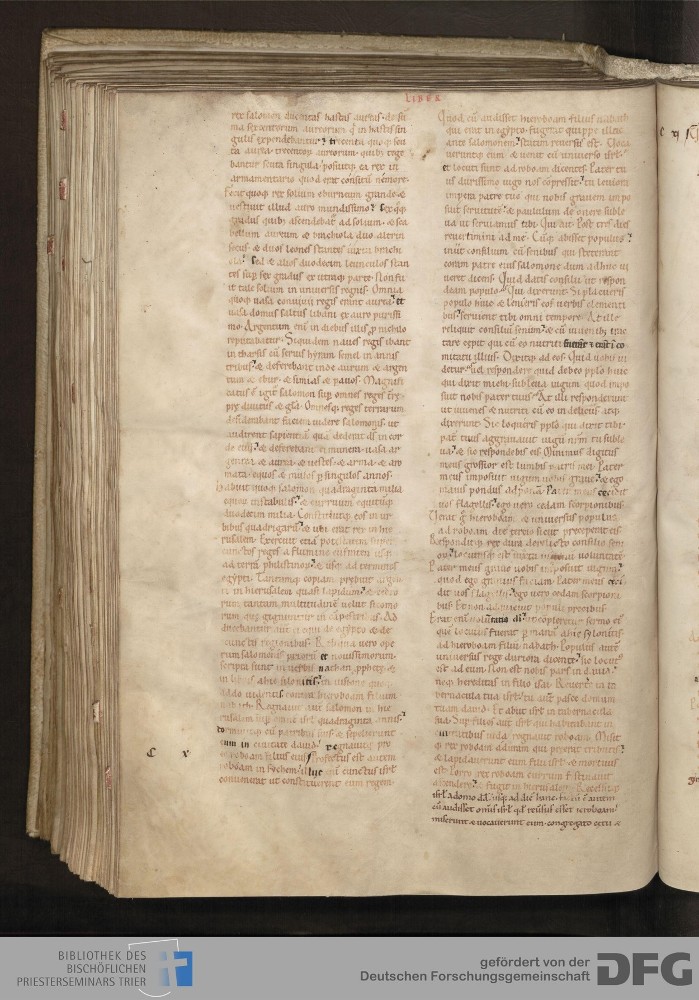 LIBER
rex salomon ducentas hastas aureas de sũ
ma sexcentorum aureorum q̃ in hastis sin
gulis expendebantur
ta aurea trecentoꝝ aureorum quibꝰ tege
bantur scuta singula posuitqꝫ ea rex in
armamentario quod erat consitũ nemore
Fecit quoqꝫ rex solium eburneum grande &
uestiuit illud auro mundissimo Sex qͦqꝫ
gradus quibꝰ ascendebat̃ ad solium & sca
bellum aureum & brachiola duo altrin
secus & duos leones stantes iuxta brachi
ola Sed & alios duodecim leunculos stan
tes sup̃ sex gradus ex utraqꝫ parte Non fu
it tale solium in uniuersis regnis Omnia
quoqꝫ uasa conuiuii regis erant aurea et
uasa domus saltus libani ex auro purissi
mo Argentum enĩ in diebus illis ꝓ nichilo
reputabatur Siquidem naues regis ibant
in tharsis cũ seruis hyram semel in annis
tribus & deferebant inde aurum & argen
tum & ebur & simias & pauos Magnifi
catus ẽ igit̃ salomon sup̃ omnes reges t̃rę
prę diuitiis & gl̃a Omnesqꝫ reges terrarum
desiderabant faciem uidere salomonis ut
audirent sapientiam quã dederat ds̃ in cor
de eiꝰ & deferebant ei munera uasa ar
gentea & aurea & uestes & arma & aro
mata equos & mulos ꝑ singulos annos
Habuit quoqꝫ salomon quadraginta milia
equoꝝ in stabulis & curruum equitũqꝫ
duodecim milia Constituitqꝫ eos in ur
bibus quadrigarũ & ubi erat rex in hie
rusalem Exercuit etiã potestatem super
cunctos reges a flumine eufraten usqꝫ
ad terrã philistinoꝝ & usqꝫ ad terminos
egypti Tantamqꝫ copiam prebuit argen
ti in hierusalem quasi lapidum & cedro
rum tantam multitudinẽ uelut sicomo
rum quę gignuntur in cãpestribꝰ Ad
ducebantur aut̃ ei equi de egypto & de
cunctis regionibus Reliqua uero ope
rum salomonis priorũ et nouissimorum
scripta sunt in uerbis nathan ꝓphetę &
in libris ahię silonitis in uisione quoqꝫ
addo uidentis contra hieroboam filium
nabath Regnauit aut̃ salomon in hie
rusalem sup̃ omnẽ isrl̃ quadraginta annis
dormiuitqꝫ cũ patribus suis & sepelierunt
eum in ciuitate dauid regnauitqꝫ pro
eo roboam filius eius Profectus est autem
roboam in sychem illuc enĩ cunctus isrl̃
conuenerat ut constituerent eum regem
C X
Quod cũ audisset hieroboam filius nabath
qui erat in egypto fugerat quippe illuc
ante salomonem statim reuersus est Uoca
ueruntqꝫ eum & uenit cũ uniuerso isrl̃
et locuti sunt ad roboam dicentes Pater tu
us durissimo iugo nos cõpressit tu leuiora
impera patre tuo qui nobis grauem impo
suit seruitutẽ & paululum de onere suble
ua ut seruiamus tibi Qui ait Post tres dies
reuertimini ad me Cũqꝫ abisset populus
iniit consilium cũ senibus qui steterant
coram patre eius salomone dum adhuc ui
ueret dicens Quid datis consilii ut respon
deam populo Qui dixerunt Si placueris
populo huic & lenieris eos uerbis clementi
bus seruient tibi omni tempore At ille
reliquit consilium senum & cũ iuuenibꝰ trac
tare cępit qui cũ eo nutriti fuerant & erant in co
mitatu illius Dixitqꝫ ad eos Quid uobis ui
detur uel respondere quid debeo ppl̃o huic
qui dixit michi subleua iugum quod impo
suit nobis pater tuus At illi responderunt
ut iuuenes & nutriti cũ eo in deliciis atqꝫ
dixerunt Sic loqueris ppl̃o qui dixit tibi
pat̃ tuus aggrauauit iugũ nr̃m tu suble
ua & sic respondebis eis Minimus digitus
meus grossior est lumbis patris mei Pater
meus imposuit uobis graue & ego
maius pondus adponã Pater meus cecidit
uos flagellis ego uero cedam scorpionibus
Uenit g̃ hieroboam & uniuersus populus
ad roboam die tercio sicut preceperat eis
Responditqꝫ rex dura derelicto consilio seni
orũ locutusqꝫ est iuxta iuuenũ uoluntatẽ
Pater meus graue uobis imposuit iugum
quod ego grauius faciam Pater meus ceci
dit uos flagellis ego uero cedam scorpioni
bus Et non adquieuit populi precibus
Erat enĩ uoluntatis di ut cõpleretur sermo eiꝰ
que locutus fuerat ꝑ manũ ahię sylonitis
ad hieroboam filiũ nabath Populus autẽ
uniuersus rege duriora dicente sic locutꝰ
est ad eum Non est nobis pars in dauid
neqꝫ hereditas in filio isai Reuertere in ta
bernacula tua isrl̃ tu aut̃ pasce domum
tuam dauid Et abiit isrl̃ in tabernacula
sua Sup̃ filios aut̃ isrl̃ qui habitabant in
ciuitatibus iuda regnauit roboam Misit
qꝫ rex roboam aduram qui preerat tributis
& lapidauerunt eum filii isrl̃ & mortuus
est Porro rex roboam currum festinauit
ascendere & fugit in hierusalem Recessitqꝫ
isrl̃ a domo dd̃ usqꝫ ad diẽ hanc Factũ ẽ autem
cũ audisset omnis isrl̃ qd̃ reuersus esset ieroboam
miserunt & uocauerunt eum congregato cetu &
BIBLIOTHEK DES
BISCHÖFLICHEN
PRIESTERSEMINARS TRIER
gefördert von der
Deutschen Forschungsgemeinschaft
DFG